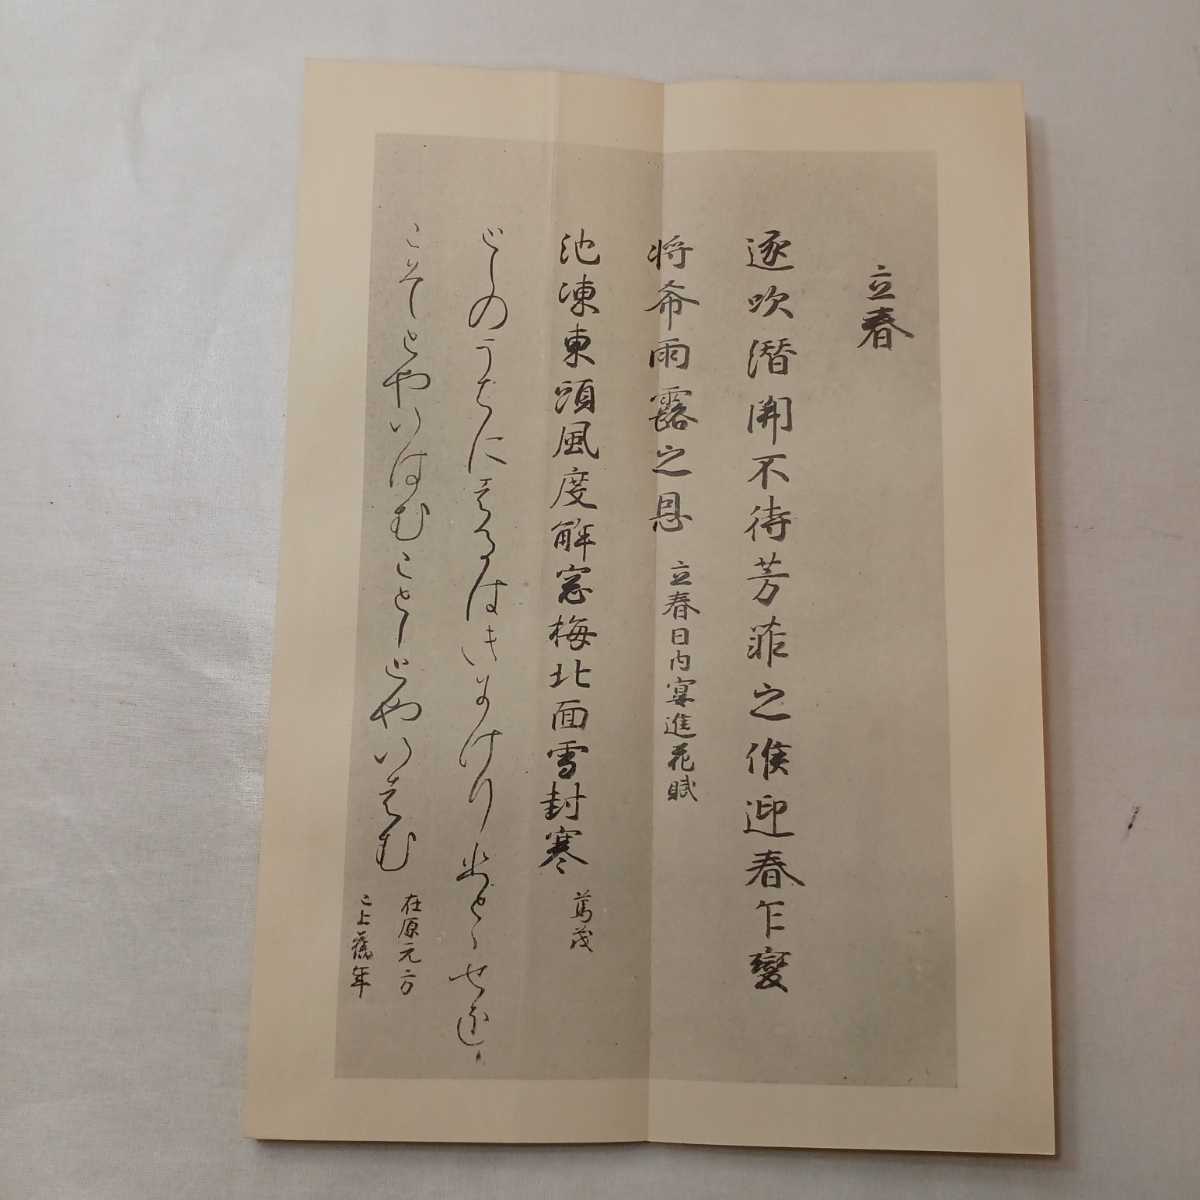 立春
逐吹潜開不待芳菲之候迎春乍變
将希雨露之恩 立春日内宴進花賦
池凍東頭風度解窓梅北面雪封寒 篤茂
としのうちにはるはきにけりひとゝせを
こそとやいはむことしとやいはむ
在原元方
已上舊年